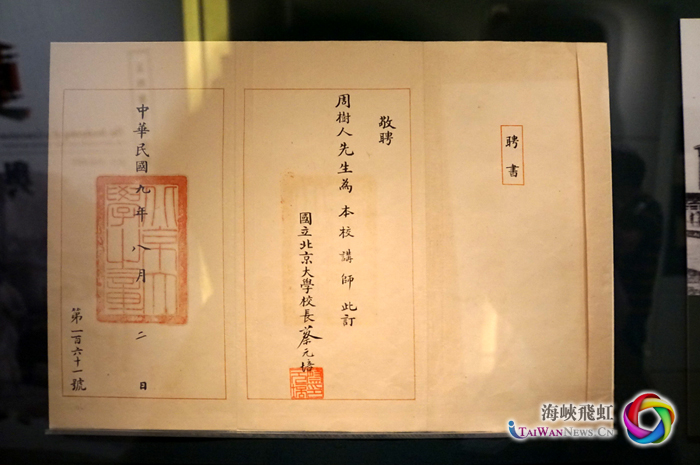 聘書
敬聘
周樹人先生為本校講師此訂
國立北京大學校長蔡元培
中華民國九年八月二日
第一百六十一號
海峽飛虹
TAIWANNEWS.CN